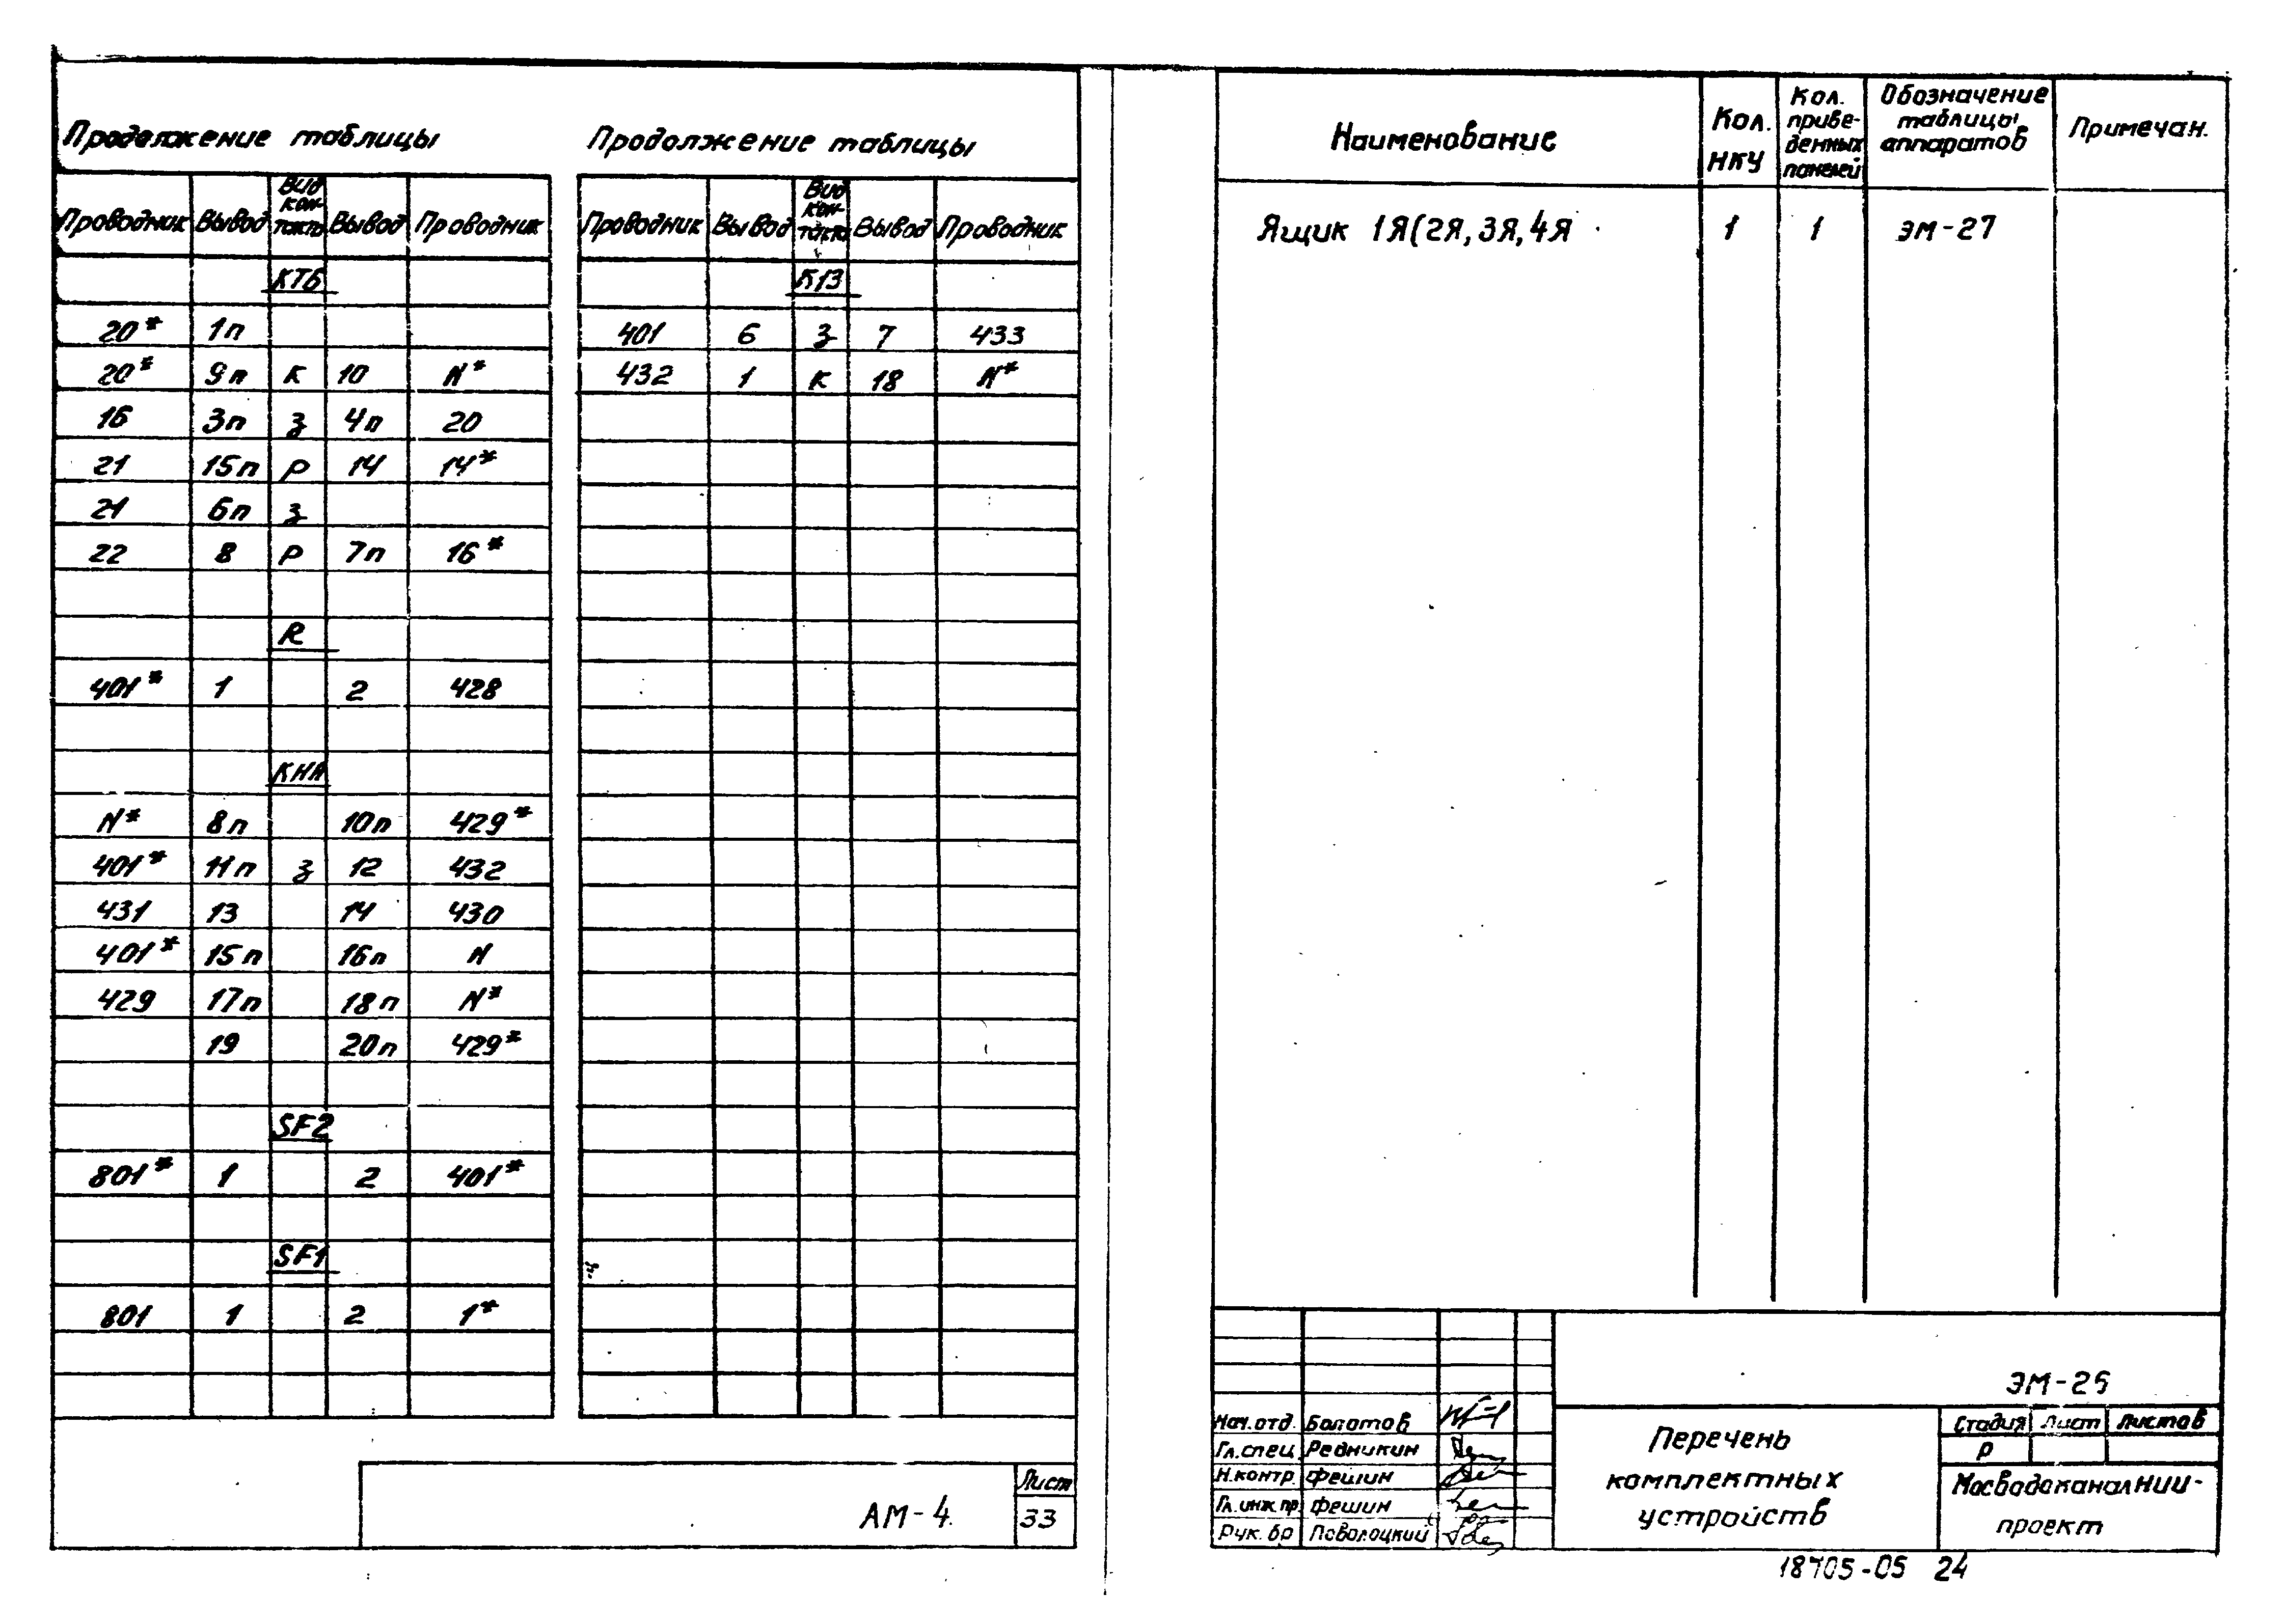 Продолжение таблицы
Проводник Вывод Вид контакта Вывод Проводник
КТ6
20* 1п
20* 9п к 10 N*
16 3п з 4п 20
21 15п р 14 14*
21 6п з
22 8 р 7п 16*
R
401* 1 2 428
КНЛ
N* 8п 10п 429*
401* 11п з 12 432
431 13 14 430
401* 15п 16п N
429 17п 18п N*
19 20п 429*
SF2
801* 1 2 401*
SF1
801 1 2 1*
Продолжение таблицы
Проводник Вывод Вид контакта Вывод Проводник
К13
401 6 з 7 433
432 1 к 18 N*
АМ-4
Лист
33
Наименование
Кол. НКУ
Кол. приве-
денных
панелей
Обозначение
таблицы
аппаратов
Примечан.
Ящик 1Я(2Я, 3Я, 4Я 1 1 ЭМ-27
ЭМ-26
Нач.отд. Болотов
Гл.спец Редникин
Н.контр. Фешин
Гл.инж.пр Фешин
Рук. бр Поволоцкий
Перечень
комплектных
устройств
Стадия Лист Листов
Р
МосводоканалНИИ-
проект
18705-05 24